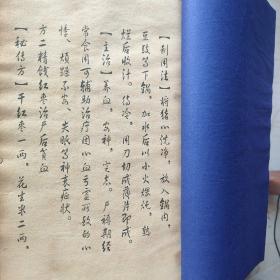 【别用法】将猪心洗净，放入锅内，
豆豉等下锅。加水后以小火煨沌，乾
煋后收汁。待冷，用刀切成薄片即成。
【主治】养血，安神，定志。产褥期经
常食用可辅助治疗因心血亏虚所致的心
悸、烦躁不安、失眠等神衰症状。
方二精饯红枣治产后贫血
【秘传方】干红枣一两。花生米二两。